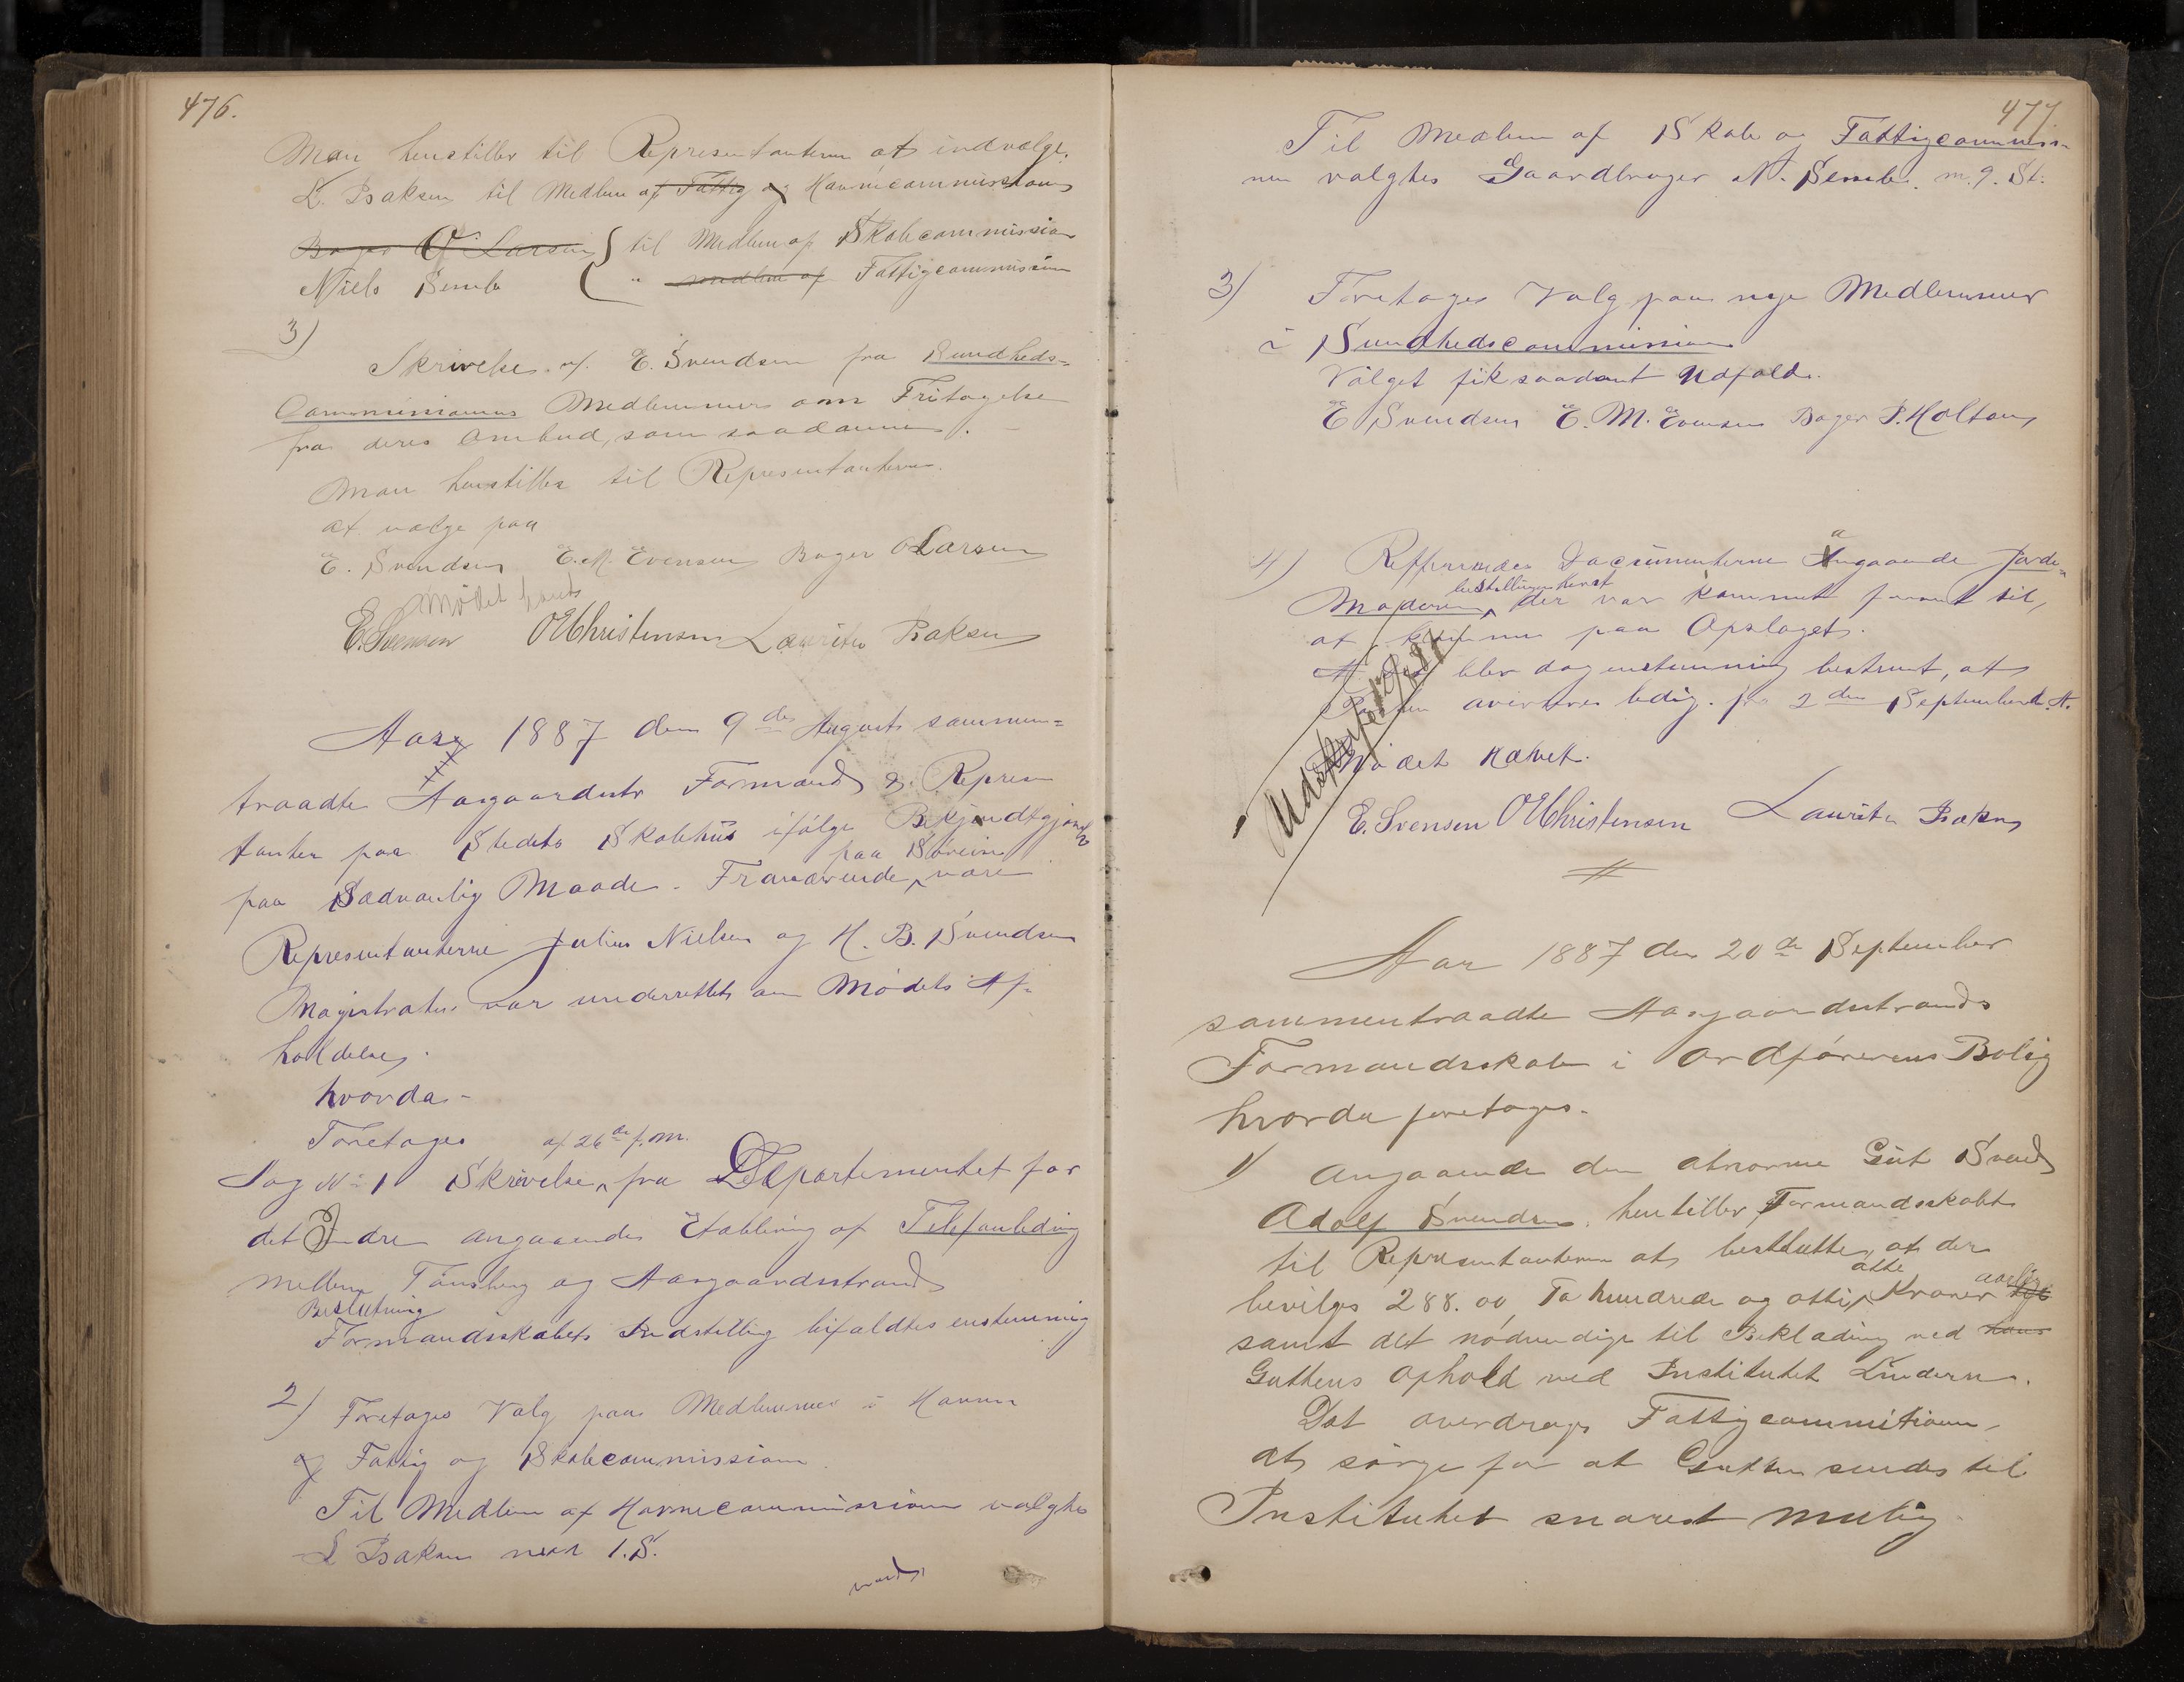 476.
Man henstiller til Representanterne at indvælge.
L. Isaksen til Medlem af Fattig og Havnecommissionen
Bager O Larsen } til Medlem af Skolecommission
Niels Semb { " medlem af Fattigcommission
3)
Skrivelse af E. Svendsen fra Sundheds-
Commissionens Medlemmer om Fritagelse
fra deres Ombud, som saadanne. -
Man henstiller til Representanterne
at vælge paa
E. Svendsen E. M. Evensen Bager O Larsen
Mødet hævet
E. Svensen O E Christensen Lauritz Isaksen
Aar 1887 den 9de August sammen=
traadte Aasgaardstr Formænd og Represen
tanter paa Stedets Skolehus ifølge Bekjendtgjørelse
paa Sædvanlig Maade. Fraværende paa Søreise vare
Representanterne Julius Nielsen og H. B. Svendsen
Magistraten var underrettet om Mødets Af-
holdelse.
hvorda -
Foretages
Sag No 1 Skrivelse af 26de f. M. fra Departementet for
det Indre angaaende Etablering af Telefonleding
mellem Tønsberg og Aasgaardsstrand
Beslutning
Formandsskabets Indstilling bifaldtes enstemmig
2) Foretages Valg paa Medlemmer i Havne
og Fattig og Skolecommission.
Til Medlem af Havnecommissionen valgtes
L Isaksen med 1. S.
vends.
477
Til Medlem af Skole og Fattigcommissio-
nen valgtes Gaardbruger N. Semb. m. 9. St.
3) Foretages Valg paa nye Medlemmer
i Sundhedscommissionen
Valget fik saadant Udfald.
E Svendsen E. M. Evensen Bager P. Holtan
4) Refereredes Documenterne Angaaende Jorde-
Moderens bestillingen her st der var kommet frem til,
at komme paa Opslaget.
blev dog enstemmig bestemt, at
Posten averteres ledig. fra 2den September d. A.
Mødet hævet.
Udskrift
E. Svensen O E Christensen Lauritz Isaksen
Aar 1887 den 20de September
sammentraadte Aasgaardstrands
Formandsskab i Ordførerens Bolig
hvorda foretages.
1) Angaaende den abnorme Gut Svend
Adolf Svendsen, henstiller Formandsskabet
til Representanterne at beslutte, at der
bevilges 288.00 To hundrede og otti otte Kroner aarlig
samt det nødvendige til Beklædning ved hans
Guttens Ophold ved Institutet Lindern.
Det overdrages Fattigcommitionen
at sørge for at Gutten sendes til
Institutet snarest mulig.